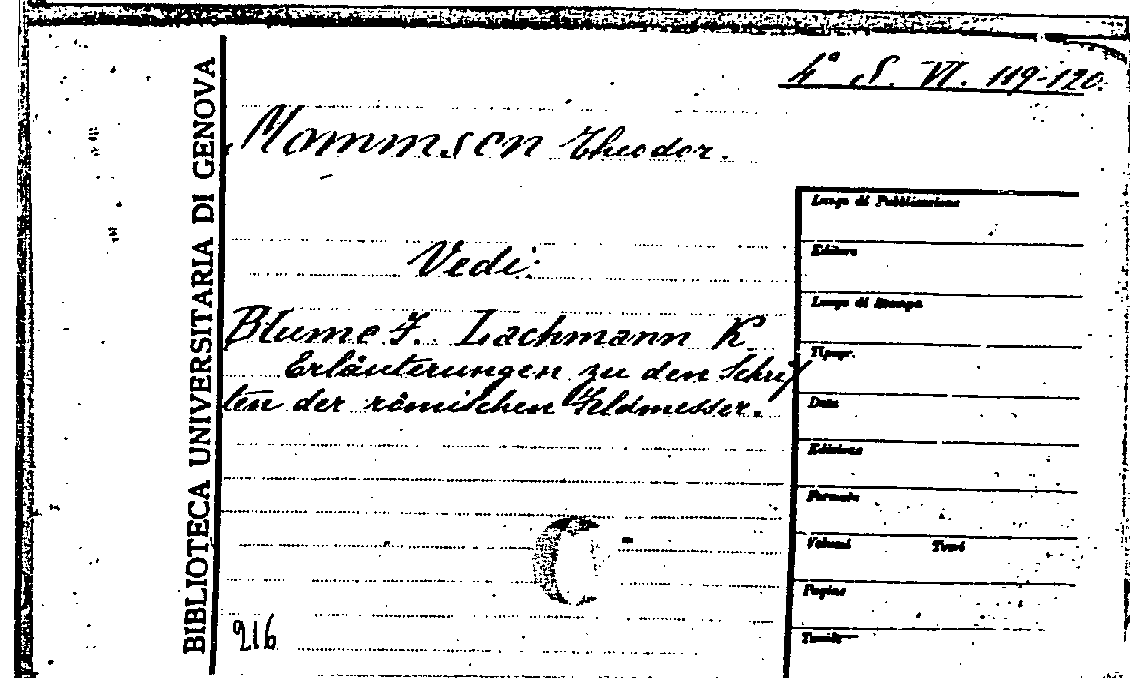 4° S. VI. 119-120.
BIBLIOTECA UNIVERSITARIA DI GENOVA
Mommsen Theodor.
Vedi:
Blume F. Lachmann K.
Erläuterungen zu den Schrif
ten der römischen Feldmesser.
216
Luogo di Pubblicazione
Editore
Luogo di Stampa
Tipogr.
Data
Edizione
Formato
Volumi Tomi
Pagine
Tavole